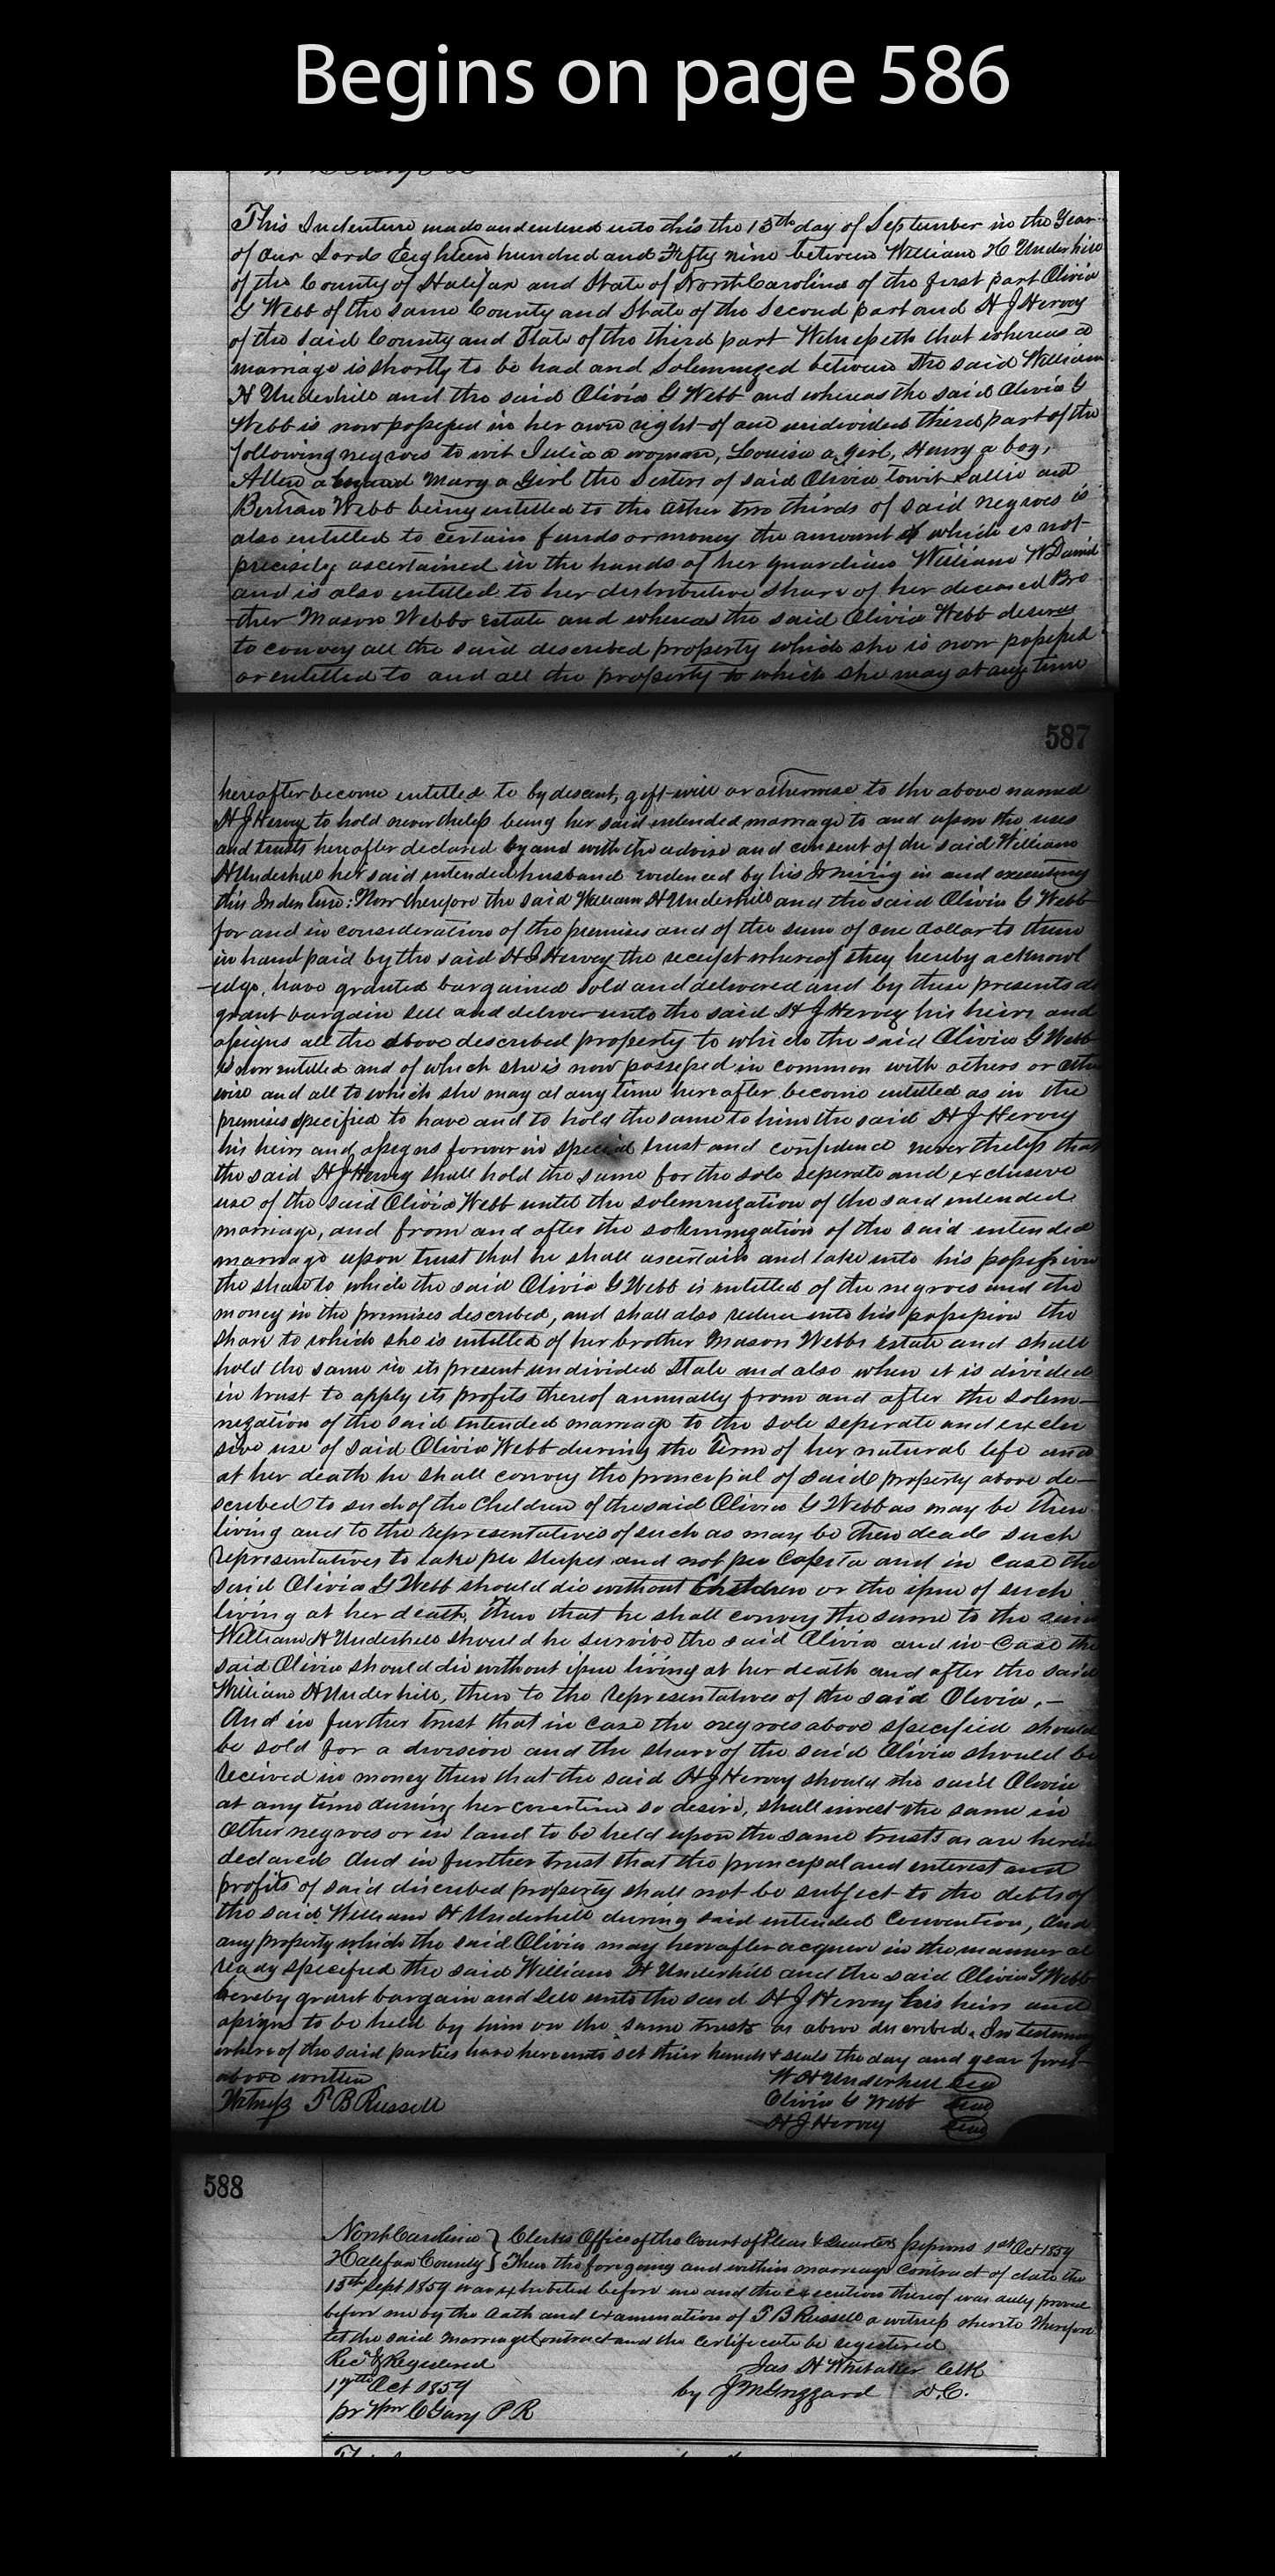 Begins on page 586
This Indenture made and entered into this the 15th day of September in the Year
of our Lord Eighteen hundred and Fifty nine between William H Underhill
of the County of Halifax and State of North Carolina of the first part Olivia
G Webb of the same County and State of the Second part and H J Hervey
of the said County and State of the third part Witnesseth that whereas a
marriage is shortly to be had and Solemnized between the said William
H Underhill and the said Olivia G Webb and whereas the said Olivia G
Webb is now possessed in her own right of one undivided third part of the
following negroes to wit Julia a woman, Louisa a girl, Henry a boy,
Allen a boy and Mary a Girl the Sisters of said Olivia towit Sallie and
Webb being entitled to the other two thirds of said negroes is
also entitled to certain funds or money the amount of which is not
precisely ascertained in the hands of her guardian William W Daniel
and is also entitled to her distributive share of her deceased Bro
ther Mason Webbs Estate and whereas the said Olivia Webb desires
to convey all the said described property which she is now possessed
or entitled to and all the property to which she may at any time
587
hereafter become entitled to by descent, gift will or otherwise to the above named
H J Hervey to hold nevertheless being her said intended marriage to and upon the uses
and trusts hereafter declared by and with the advise and consent of the said William
H Underhill her said intended husband evidenced by his Joining in and executing
this Indenture: Now therefore the said William H Underhill and the said Olivia G Webb
for and in consideration of the premises and of the sum of one dollar to them
in hand paid by the said H J Hervey the receipt whereof they hereby acknowl
-edge, have granted bargained Sold and delivered and by these presents do
grant bargain sell and deliver unto the said H J Hervey his heirs and
assigns all the above described property to which the said Olivia G Webb
is now entitled and of which she is now possessed in common with others or other
wise and all to which she may at any time hereafter become entitled as in the
premises specified to have and to hold the same to him the said H J Hervey
his heirs and assigns forever in special trust and confidence nevertheless that
the said H J Hervey shall hold the same for the sole seperate and exclusive
use of the said Olivia Webb until the solemnization of the said intended
marriage, and from and after the solemnization of the said intended
marriage upon trust that he shall ascertain and take into his possession
the share to which the said Olivia G Webb is entitled of the negroes and the
money in the premises described, and shall also reduce into his possession the
share to which she is entitled of her brother Mason Webbs Estate and shall
hold the same in its present undivided State and also when it is divided
in trust to apply its profits thereof annually from and after the solem-
nization of the said intended marriage to the sole seperate and exclu
sive use of said Olivia Webb during the Term of her natural life and
at her death he shall convey the principal of said property above de-
scribed to such of the Children of the said Olivia G Webb as may be Then
living and to the representatives of such as may be Then dead such
representatives to take per stirpes and not per Capita and in case the
said Olivia G Webb should die without Children or the issue of such
living at her death, then that he shall convey the same to the said
William H Underhill should he survive the said Olivia and in Case the
said Olivia should die without issue living at her death and after the said
William H Underhill, then to the representatives of the said Olivia, -
And in further trust that in case the negroes above specified should
be sold for a division and the share of the said Olivia should be
received in money then that the said H J Hervey should the said Olivia
at any time during her coverture so desire, shall invest the same in
other negroes or in land to be held upon the same trusts as are herein
declared And in further trust that the principal and interest and
profits of said discribed property shall not be subject to the debts of
the said William H Underhill during said intended Convention, And
any property which the said Olivia may hereafter acquire in the manner al
ready specified the said William H Underhill and the said Olivia G Webb
hereby grant bargain and Sell unto the said H J Hervey his heirs and
assigns to be held by him on the same trusts as above described. In testimony
whereof the said parties have hereunto set their hands & seals the day and year first
above written
W H Underhill Seal
Witness T B Russell
Olivia G Webb Seal
H J Hervey Seal
588
North Carolina } Clerks Office of the Court of Pleas & Quarters Sessions 1st Oct 1859
Halifax County } Then the foregoing and within marriage Contract of date the
15th Sept 1859 was exhibited before me and the execution thereof was duly proved
before me by the Oath and examination of T B Russell a witness thereto Therefore
let the said Marriage Contract and the Certificate be registered
Recd & Registered
Jas H Whitaker Clk
17th Oct 1859
by J M Grizzard D.C.
pr Wm C Gary P R